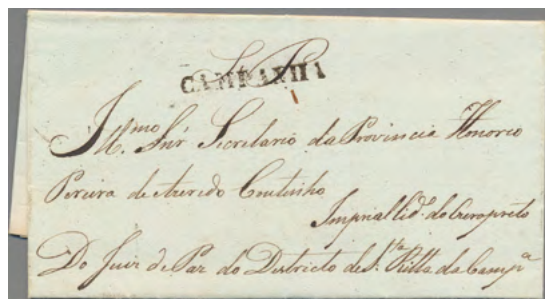 S. P.
CAMPANHA
Illmo. Snr. Secretario da Provincia Honorio
Pereira de Azeredo Coutinho
Imperial Cide. do Ouro preto
Do Juiz de Paz do Districto de Sta. Ritta da Campa.